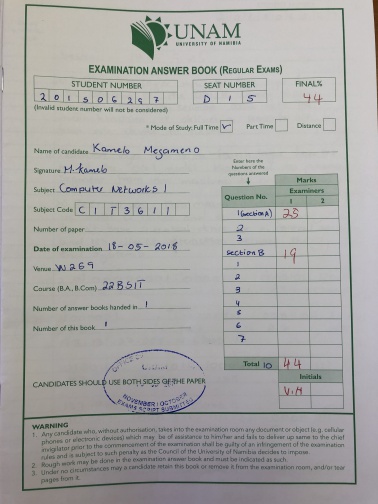 UNAM
UNIVERSITY OF NAMIBIA
EXAMINATION ANSWER BOOK (REGULAR EXAMS)
STUDENT NUMBER
201506287
(Invalid student number will not be considered)
SEAT NUMBER
D15
FINAL%
44
* Mode of Study: Full Time ✓ Part Time Distance
Name of candidate Kamelo Megameno
Signature M.Kamelo
Subject Computer Networks 1
Subject Code CIT3611
Number of paper
Date of examination 18-05-2018
Venue W259
Course (B.A., B.Com) 22BSIT
Number of answer books handed in 1
Number of this book 1
Enter here the Numbers of the questions answered
Marks
Question No. Examiners
1 2
1(section A) 25
2
3
section B 19
1
2
3
4
5
6
7
Total 10 44
Initials
V.M
CANDIDATES SHOULD USE BOTH SIDES OF THE PAPER
NOVEMBER / OCTOBER
EXAMS SCRIPT SUBMITTED
WARNING
1. Any candidate who, without authorisation, takes into the examination room any document or object (e.g. cellular
phones or electronic devices) which may be of assistance to him/her and fails to deliver up same to the chief
invigilator prior to the commencement of the examination shall be guilty of an infringement of the examination
rules and is subject to such penalty as the Council of the University of Namibia decides to impose.
2. Rough work may be done in the examination answer book and must be indicated as such.
3. Under no circumstances may a candidate retain this book or remove it from the examination room, and/or tear
pages from it.